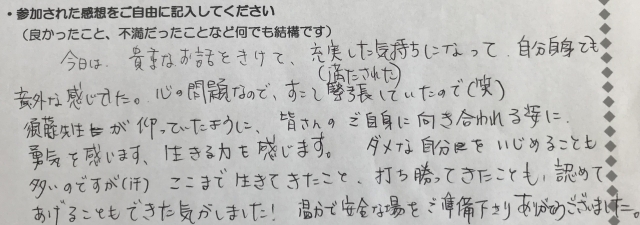 ・参加された感想をご自由に記入してください
（良かったこと、不満だったことなど何でも結構です）
今日は、貴重なお話をきけて、充実した気持ちになって、自分自身でも
（満たされた）
意外な感じでした。心の問題なので、すこし緊張していたので（笑）
須藤先生が仰っていたように、皆さんのご自身に向き合われる姿に、
勇気を感じます、生きる力を感じます。 ダメな自分をいじめることも
多いのですが（汗） ここまで生きてきたこと、打ち勝ってきたことも、認めて
あげることもできた気がしました！ 温かで安全な場をご準備下さりありがとうございました。